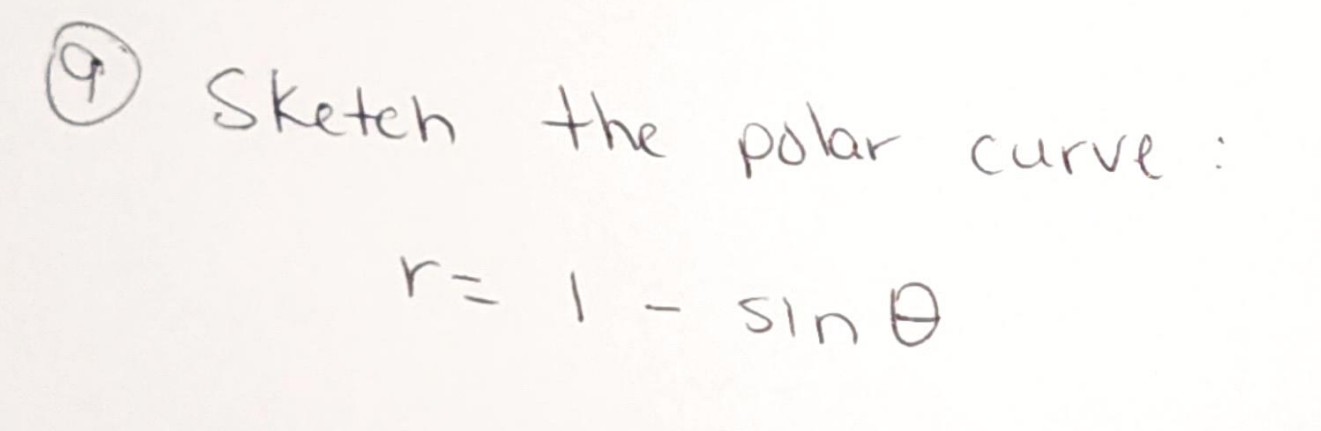 9 Sketch the polar curve :
r = 1 - sin θ